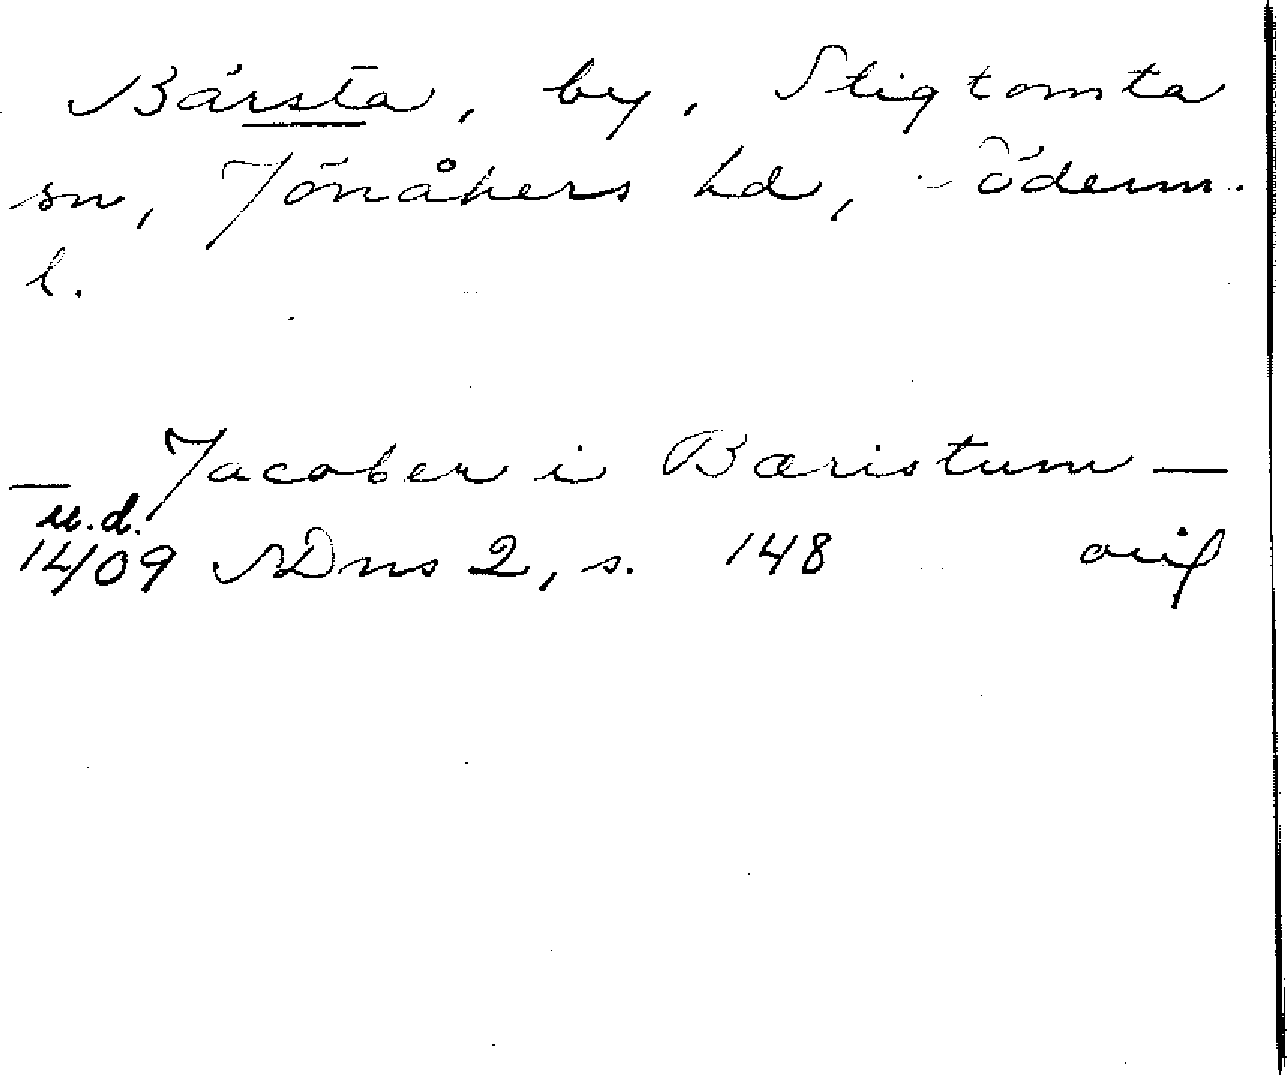 Bärsta, by, Stigtomta
sn, Jönåkers hd, Söderm.
l.
— Jacober i Bæristum —
u.d.
1409 NDns 2, s. 148 orig